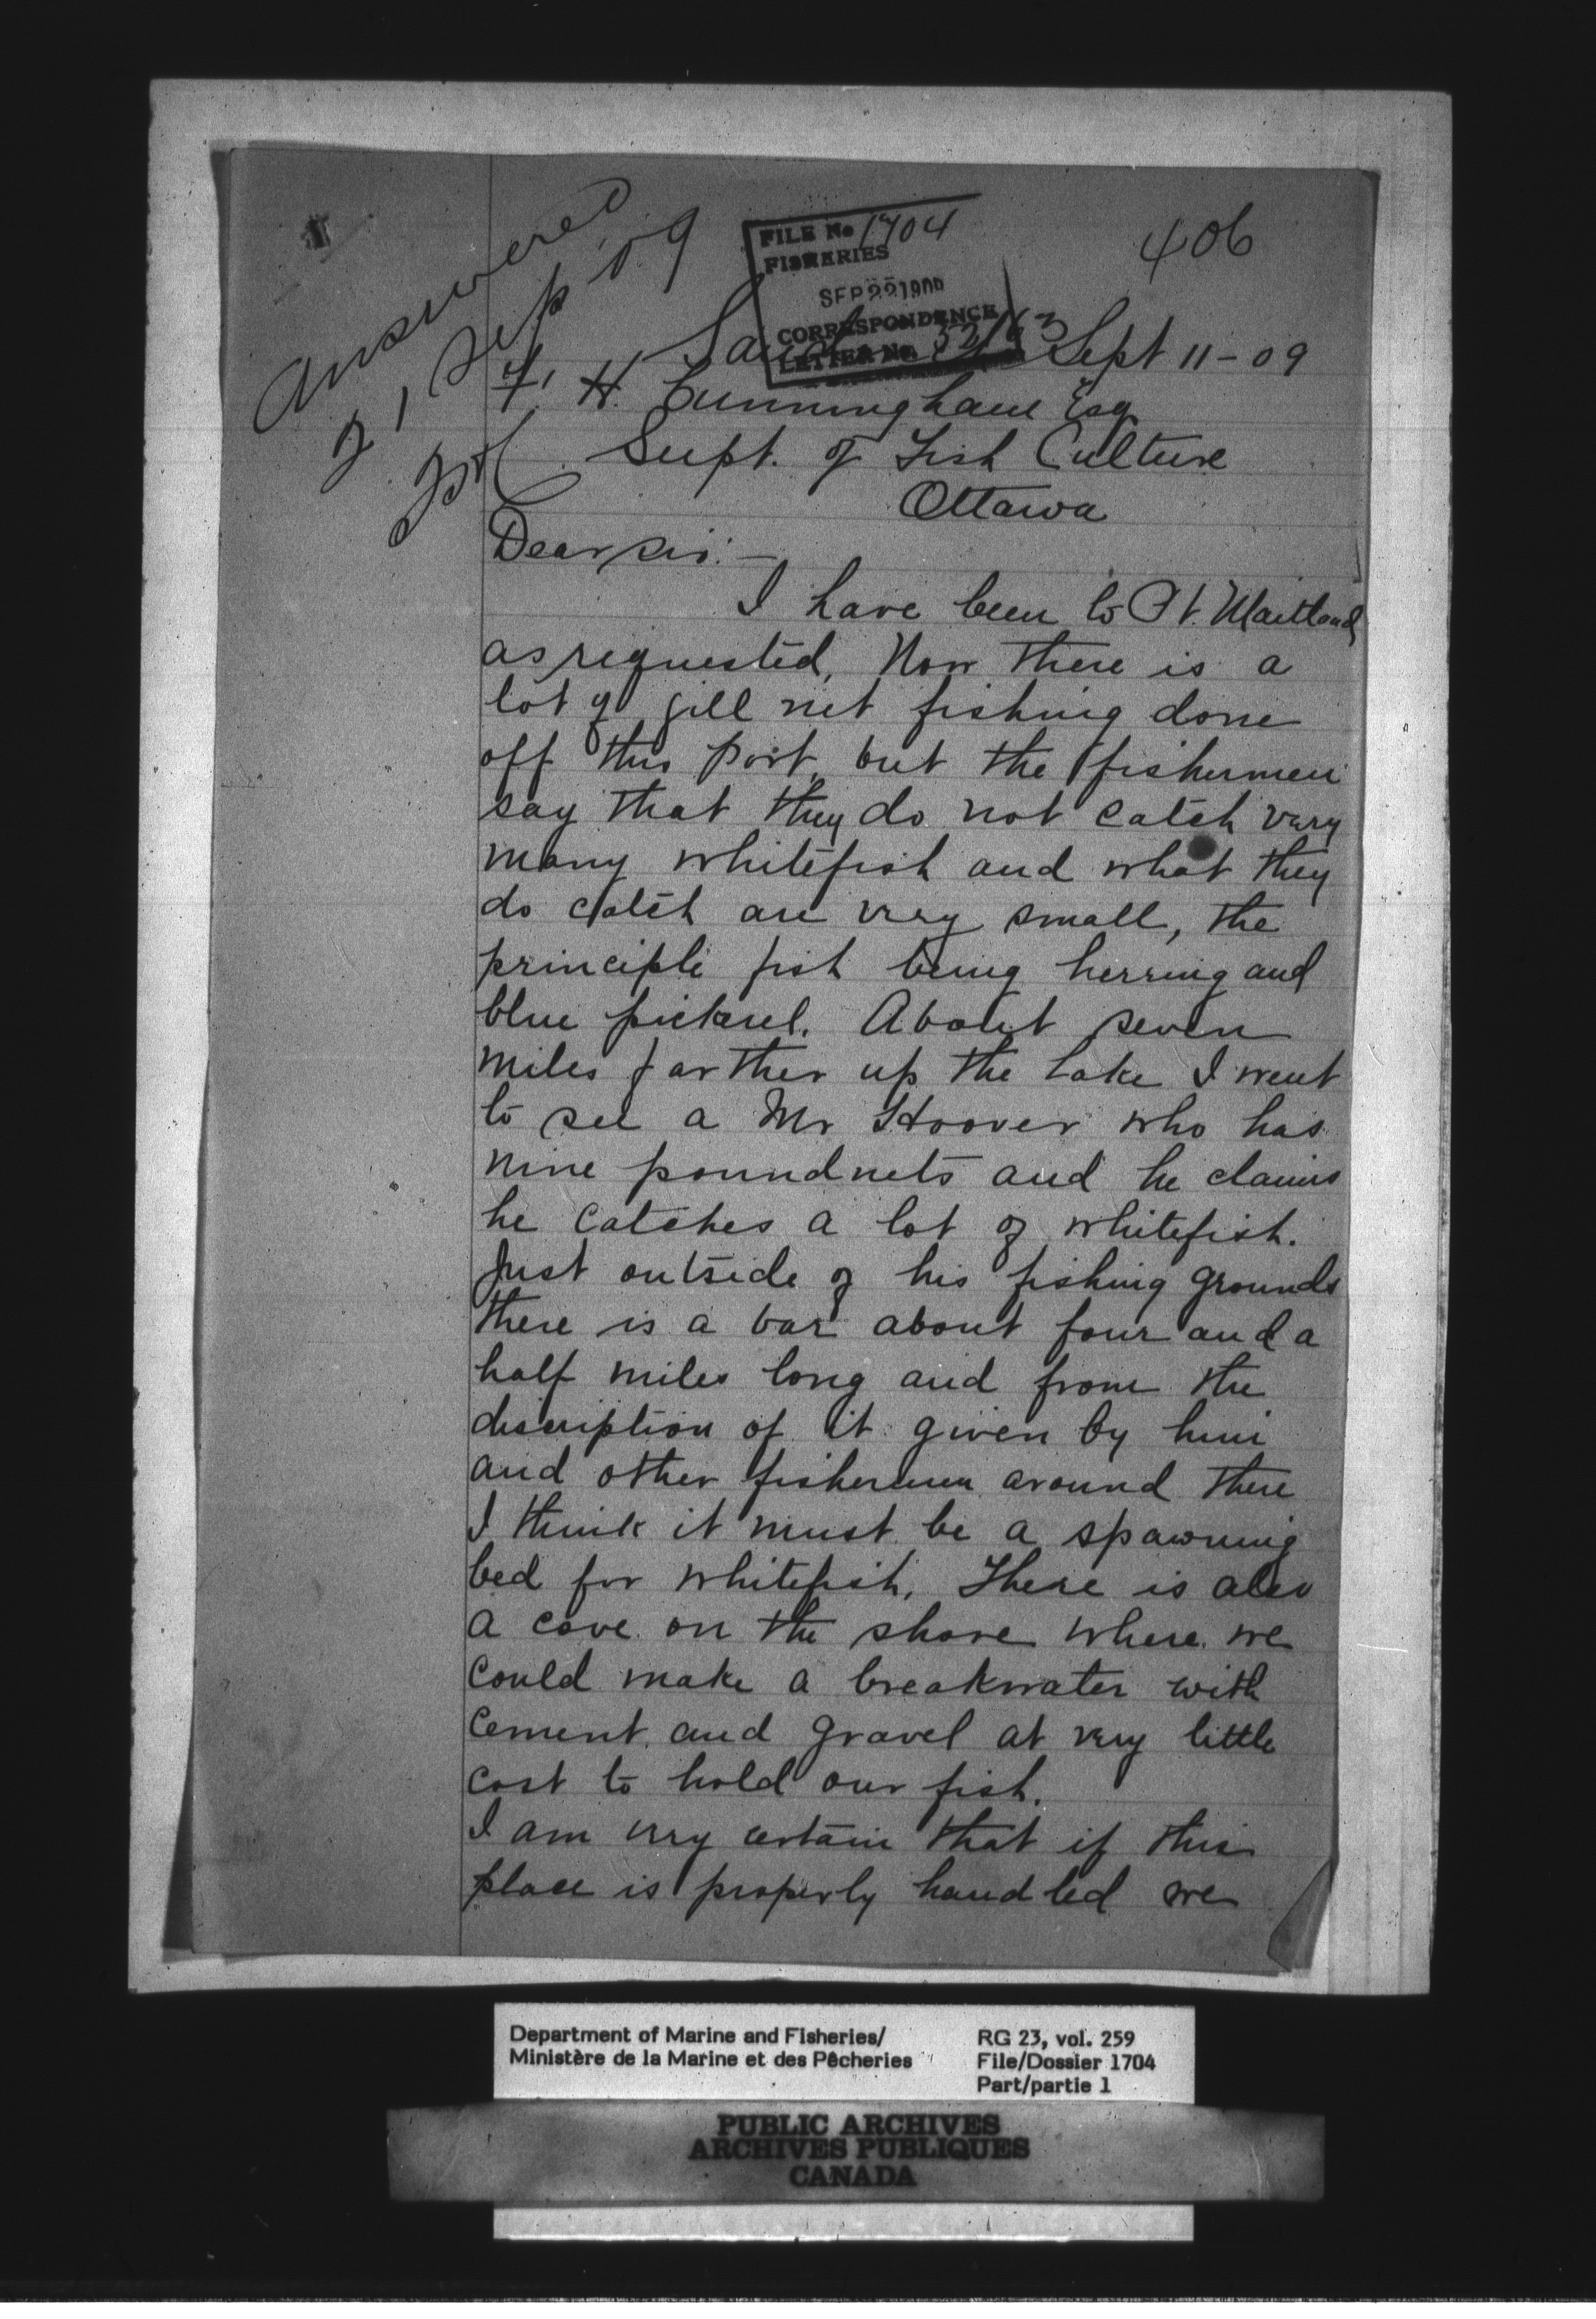 Answered
21 Sep '09
406
FILE No 1704
FISHERIES
SEP 22 1909
CORRESPONDENCE
LETTER No.
Sept 11 - 09
F. H. Cunningham Esq
Supt. of Fish Culture
Ottawa
Dear Sir: —
I have been to Pt. Maitland
as requested, Now there is a
lot of gill net fishing done
off this Port, but the fishermen
say that they do not catch very
many whitefish and what they
do catch are very small, the
principle fish being herring and
blue pickerel. About seven
miles farther up the Lake I went
to see a Mr Hoover who has
nine poundnets and he claims
he catches a lot of whitefish.
Just outside of his fishing grounds
there is a bar about four and a
half miles long and from the
discription of it given by him
and other fishermen around there
I think it must be a spawning
bed for whitefish. There is also
a cove on the shore where we
could make a breakwater with
cement and gravel at very little
cost to hold our fish.
I am very certain that if this
place is properly handled we
Department of Marine and Fisheries/
Ministère de la Marine et des Pêcheries
RG 23, vol. 259
File/Dossier 1704
Part/partie 1
PUBLIC ARCHIVES
ARCHIVES PUBLIQUES
CANADA